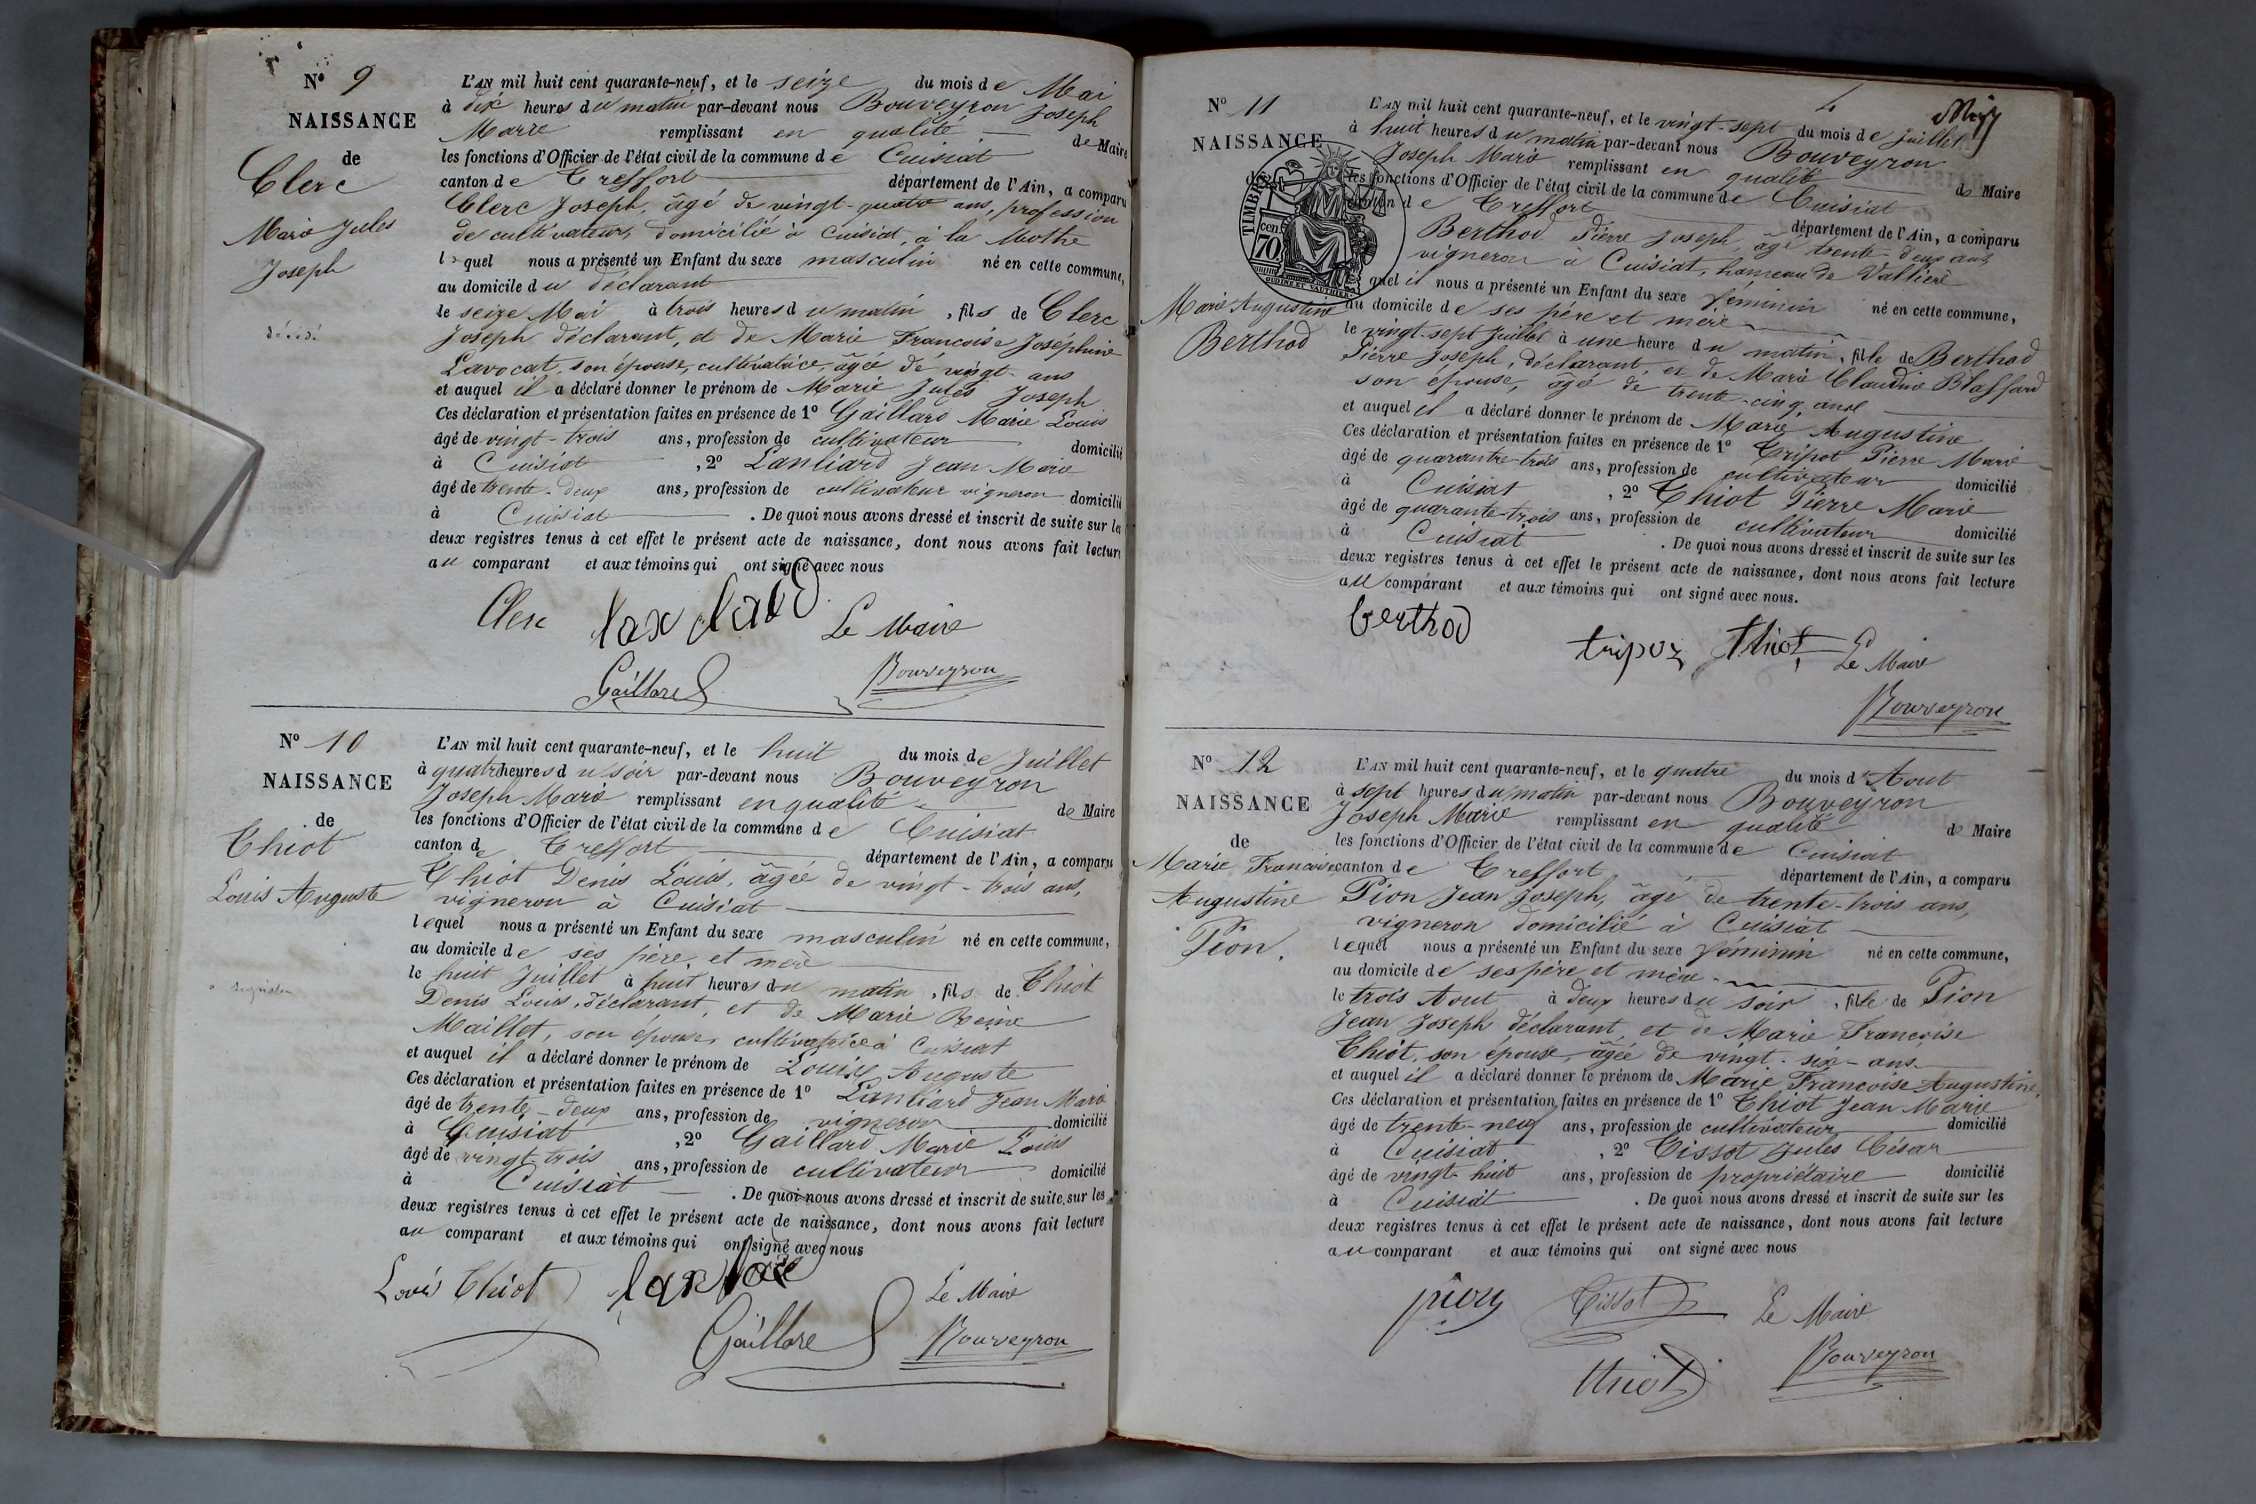 N° 9
NAISSANCE
de
Clerc
Marie Jules
Joseph
décédé
L'AN mil huit cent quarante-neuf, et le seize du mois de Mai
à dix heures du matin par-devant nous Bouveyron Joseph
Marie remplissant en qualité de Maire
les fonctions d'Officier de l'état civil de la commune de Cuisiat
canton de Treffort département de l'Ain, a comparu
Clerc Joseph, âgé de vingt-quatre ans, profession
de cultivateur, domicilié à Cuisiat, à la Mothe
lequel nous a présenté un Enfant du sexe masculin né en cette commune,
au domicile du déclarant
le seize Mai à trois heures du matin, fils de Clerc
Joseph déclarant, et de Marie Francoise Joséphine
Lavocat, son épouse, cultivatrice, âgée de vingt ans
et auquel il a déclaré donner le prénom de Marie Jules Joseph
Ces déclaration et présentation faites en présence de 1° Gaillard Marie Louis
âgé de vingt-trois ans, profession de cultivateur domicilié
à Cuisiat, 2° Lanliard Jean Marie
âgé de trente-deux ans, profession de cultivateur vigneron domicilié
à Cuisiat. De quoi nous avons dressé et inscrit de suite sur les
deux registres tenus à cet effet le présent acte de naissance, dont nous avons fait lecture
au comparant et aux témoins qui ont signé avec nous
Clerc
Le Maire
Gaillard
Bouveyron
N° 10
NAISSANCE
de
Thiot
Louis Auguste
L'AN mil huit cent quarante-neuf, et le huit du mois de Juillet
à quatre heures du soir par-devant nous Bouveyron
Joseph Marie remplissant en qualité de Maire
les fonctions d'Officier de l'état civil de la commune de Cuisiat
canton de Treffort département de l'Ain, a comparu
Thiot Denis Louis, âgée de vingt-trois ans,
vigneron à Cuisiat
lequel nous a présenté un Enfant du sexe masculin né en cette commune,
au domicile de ses père et mère
le huit Juillet à huit heures du matin, fils de Thiot
Denis Louis, déclarant, et de Marie Reine
Maillet, son épouse, cultivatrice à Cuisiat
et auquel il a déclaré donner le prénom de Louis Auguste
Ces déclaration et présentation faites en présence de 1° Lanliard Jean Marie
âgé de trente-deux ans, profession de vigneron domicilié
à Cuisiat, 2° Gaillard Marie Louis
âgé de vingt-trois ans, profession de cultivateur domicilié
à Cuisiat. De quoi nous avons dressé et inscrit de suite sur les
deux registres tenus à cet effet le présent acte de naissance, dont nous avons fait lecture
au comparant et aux témoins qui ont signé avec nous
Louis Thiot
Le Maire
Gaillard
Bouveyron
4
N° 11
NAISSANCE
TIMBRE
70 cen
Marie Augustine
Berthod
L'AN mil huit cent quarante-neuf, et le vingt-sept du mois de Juillet
à huit heures du matin par-devant nous Bouveyron
Joseph Marie remplissant en qualité de Maire
les fonctions d'Officier de l'état civil de la commune de Cuisiat
canton de Treffort département de l'Ain, a comparu
Berthod Pierre Joseph, âgé trente-deux ans,
vigneron a Cuisiat, hameau de Vallière
quel il nous a présenté un Enfant du sexe féminin né en cette commune,
au domicile de ses père et mère
le vingt-sept Juillet à une heure du matin, fille de Berthod
Pierre Joseph, déclarant, et de Marie Claudine Blaffard
son épouse, âgée de trente-cinq ans
et auquel il a déclaré donner le prénom de Marie Augustine
Ces déclaration et présentation faites en présence de 1° Tripot Pierre Marie
âgé de quarante-trois ans, profession de cultivateur domicilié
à Cuisiat, 2° Thiot Pierre Marie
âgé de quarante-trois ans, profession de cultivateur domicilié
à Cuisiat. De quoi nous avons dressé et inscrit de suite sur les
deux registres tenus à cet effet le présent acte de naissance, dont nous avons fait lecture
au comparant et aux témoins qui ont signé avec nous.
berthod
tripoz thiot Le Maire
Bouveyron
N° 12
NAISSANCE
de
Marie Francoise
Augustine
Pion.
L'AN mil huit cent quarante-neuf, et le quatre du mois d'Aout
à sept heures du matin par-devant nous Bouveyron
Joseph Marie remplissant en qualité de Maire
les fonctions d'Officier de l'état civil de la commune de Cuisiat
canton de Treffort département de l'Ain, a comparu
Pion Jean Joseph, âgé de trente-trois ans,
vigneron domicilié à Cuisiat
lequel nous a présenté un Enfant du sexe féminin né en cette commune,
au domicile de ses père et mère
le trois Aout à deux heures du soir, fille de Pion
Jean Joseph déclarant et de Marie Francoise
Thiot, son épouse, âgée de vingt-six ans
et auquel il a déclaré donner le prénom de Marie Francoise Augustine
Ces déclaration et présentation faites en présence de 1° Thiot Jean Marie
âgé de trente-neuf ans, profession de cultivateur domicilié
à Cuisiat, 2° Tissot Jules César
âgé de vingt-huit ans, profession de propriétaire domicilié
à Cuisiat. De quoi nous avons dressé et inscrit de suite sur les
deux registres tenus à cet effet le présent acte de naissance, dont nous avons fait lecture
au comparant et aux témoins qui ont signé avec nous
pion Tissot Le Maire
thiot Bouveyron